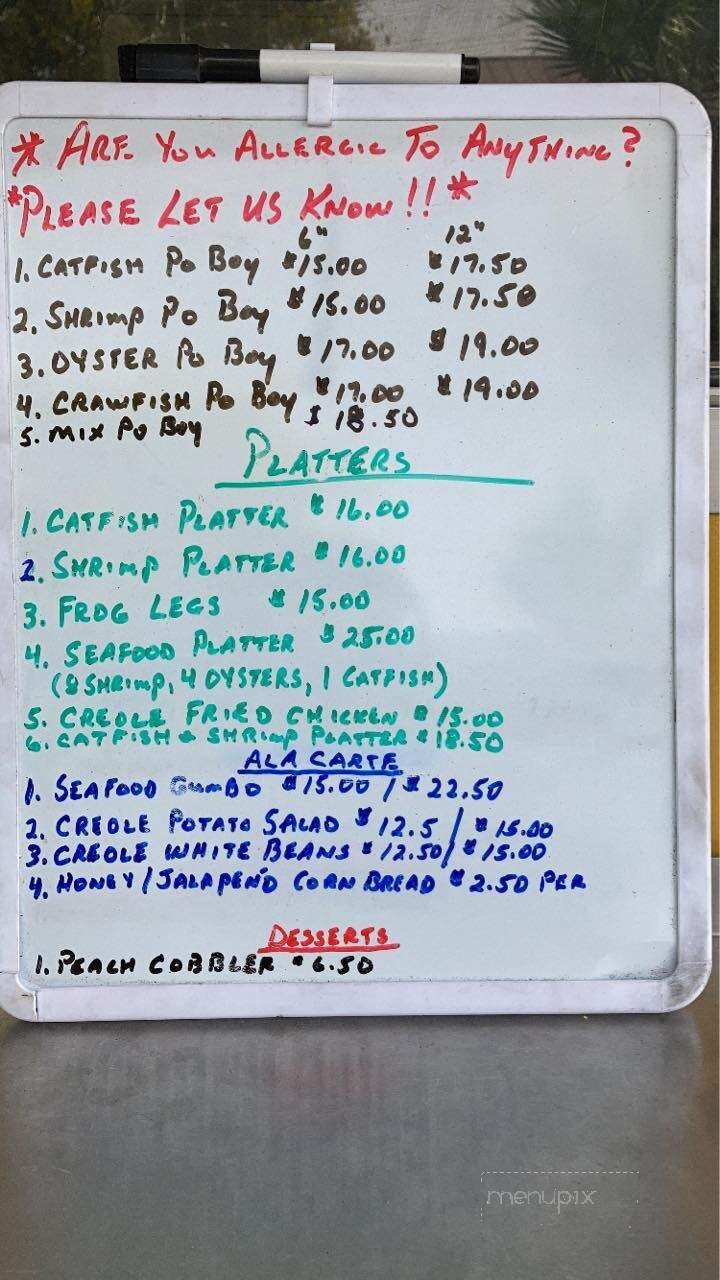 * ARE YOU ALLERGIC TO ANYTHING?
*PLEASE LET US KNOW!! *
6" 12"
1. CATFISH PO BOY $15.00 $17.50
2. SHRIMP PO BOY $15.00 $17.50
3. OYSTER PO BOY $17.00 $19.00
4. CRAWFISH PO BOY $17.00 $19.00
5. MIX PO BOY $18.50
PLATTERS
1. CATFISH PLATTER $16.00
2. SHRIMP PLATTER $16.00
3. FROG LEGS $15.00
4. SEAFOOD PLATTER $25.00
(8 SHRIMP, 4 OYSTERS, 1 CATFISH)
5. CREOLE FRIED CHICKEN $15.00
6. CATFISH & SHRIMP PLATTER $18.50
ALA CARTE
1. SEAFOOD GUMBO $15.00 / $22.50
2. CREOLE POTATO SALAD $12.5 / $15.00
3. CREOLE WHITE BEANS $12.50 / $15.00
4. HONEY / JALAPEÑO CORN BREAD $2.50 PER
DESSERTS
1. PEACH COBBLER $6.50
menupix